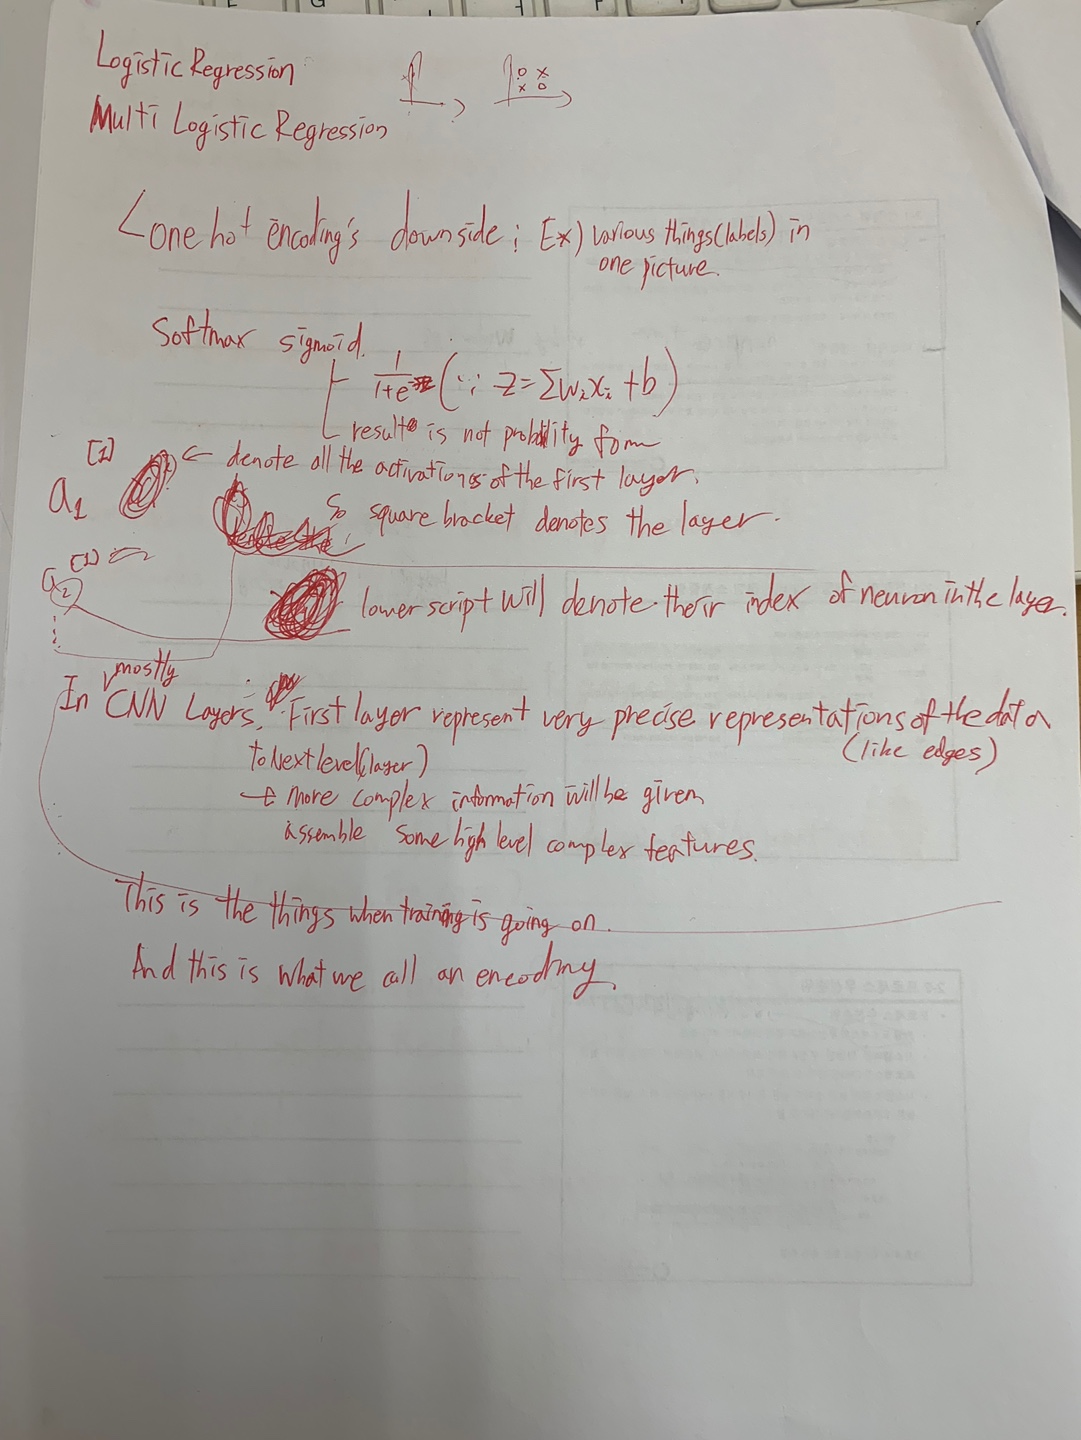 Logistic Regression
Multi Logistic Regression
one hot encoding's downside : Ex) various things(labels) in
one picture.
Softmax sigmoid.
1/1+e^-z (∵ z=Σwᵢxᵢ+b)
result is not probility form
a₁^[1] ← denote all the activations of the first layer.
So square bracket denotes the layer.
a₂^[1]
lowerscript will denote their index of neuron in the layer.
In mostly CNN Layers, First layer represent very precise representations of the data
(like edges)
to Next level(layer)
→ more complex information will be given
assemble some high level complex features.
This is the things when training is going on.
And this is what we call an encoding.